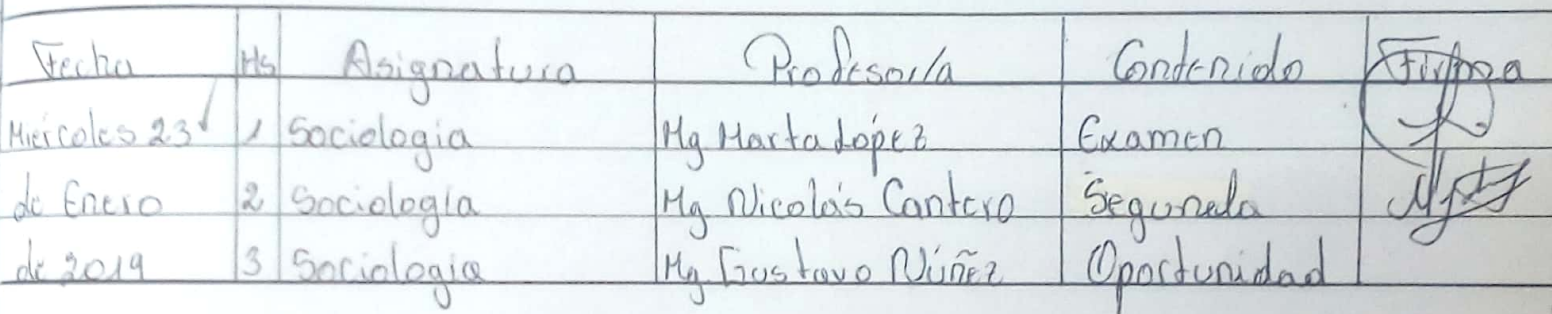 Fecha Hs Asignatura Profesor/a Contenido Firma
Miércoles 23 1 Sociología Mg Marta López Examen
de Enero 2 Sociología Mg Nicolás Cantero Segunda
de 2019 3 Sociología Mg Gustavo Núñez Oportunidad